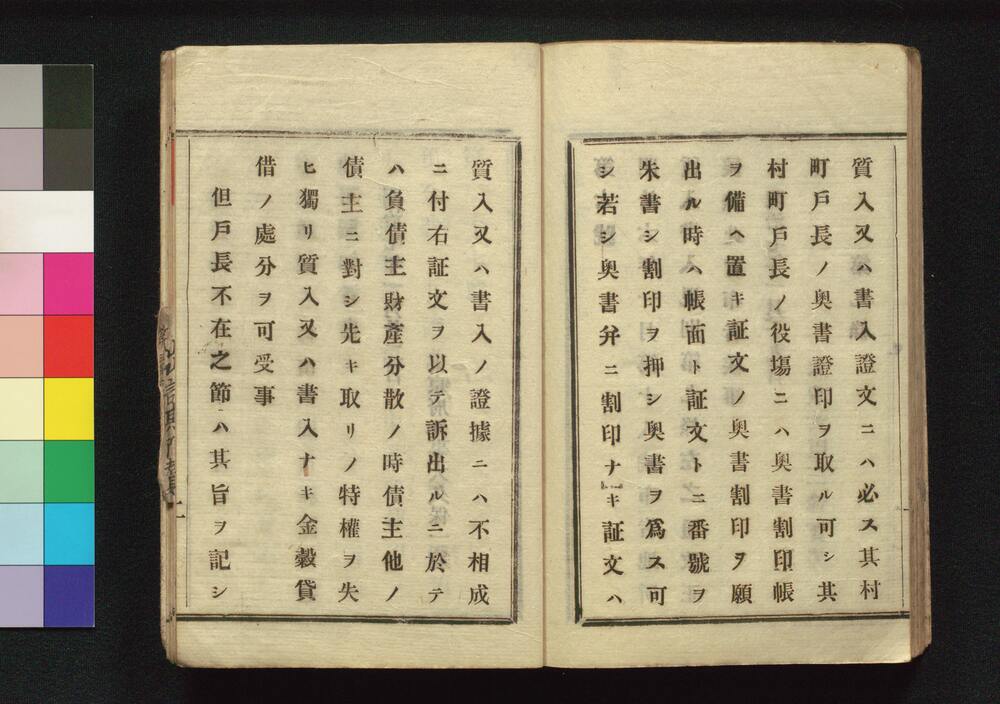 質入又ハ書入證文ニハ必ス其村
町戸長ノ奥書證印ヲ取ル可シ其
村町戸長ノ役場ニハ奥書割印帳
ヲ備ヘ置キ証文ノ奥書割印ヲ願
出ル時ハ帳面ト証文トニ番號ヲ
朱書シ割印ヲ押シ奥書ヲ爲ス可
シ若シ奥書弁ニ割印ナキ証文ハ
質入又ハ書入ノ證據ニハ不相成
ニ付右証文ヲ以テ訴出ルニ於テ
ハ負債主財產分散ノ時債主他ノ
債主ニ對シ先キ取リノ特權ヲ失
ヒ獨リ質入又ハ書入ナキ金穀貸
借ノ處分ヲ可受事
但戸長不在之節ハ其旨ヲ記シ